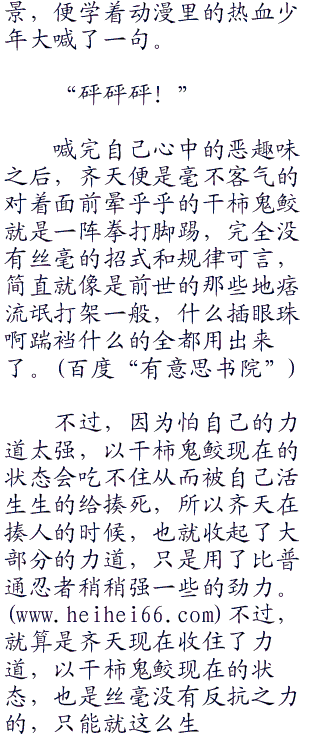 景，便学着动漫里的热血少
年大喊了一句。
“砰砰砰！”
喊完自己心中的恶趣味
之后，齐天便是毫不客气的
对着面前晕乎乎的干柿鬼鲛
就是一阵拳打脚踢，完全没
有丝毫的招式和规律可言，
简直就像是前世的那些地痞
流氓打架一般，什么插眼珠
啊踹裆什么的全都用出来
了。(百度“有意思书院”)
不过，因为怕自己的力
道太强，以干柿鬼鲛现在的
状态会吃不住从而被自己活
生生的给揍死，所以齐天在
揍人的时候，也就收起了大
部分的力道，只是用了比普
通忍者稍稍强一些的劲力。
(www.heihei66.com)不过，
就算是齐天现在收住了力
道，以干柿鬼鲛现在的状
态，也是丝毫没有反抗之力
的，只能就这么生